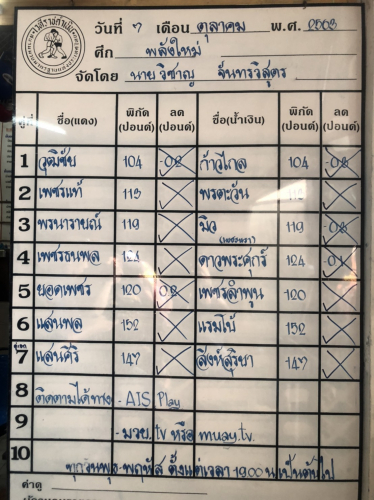 วันที่ ๗ เดือน ตุลาคม พ.ศ. 2563
ศึก พลังใหม่
จัดโดย นาย วิชาญ จันทรวิสูตร
คู่ที่ ชื่อ(แดง) พิกัด (ปอนด์) ลด (ปอนด์) ชื่อ(น้ำเงิน) พิกัด (ปอนด์) ลด (ปอนด์)
1 วุฒิชัย 104 -0.2 ก้าวไกล 104 -0.2
2 เพชรแท้ 113 พรตะวัน 113
3 พรนารายณ์ 119 มิว 119
4 เพชรธนพล 124 ดาวพระศุกร์ 124 -0.1
5 ยอดเพชร 120 0.2 เพชรลำพูน 120
6 แสนพล 152 แรมโบ้ 152
7 แสนคีรี 147 สิงห์สุริยา 147
8 ติดตามได้ทาง - AIS Play
9 - มวย.tv หรือ muay.tv.
10 ทุกวันพุธ-พฤหัส ตั้งแต่เวลา 19.00 น เป็นต้นไป
ค่าดู